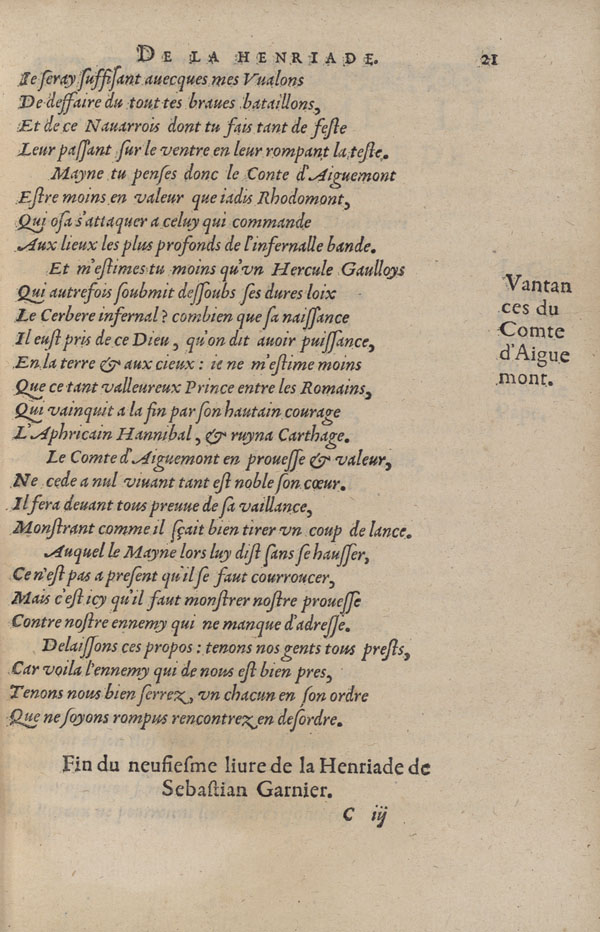 DE LA HENRIADE. 21
Ie seray suffisant auecques mes Vualons
De deffaire du tout tes braues bataillons,
Et de ce Nauarrois dont tu fais tant de feste
Leur passant sur le ventre en leur rompant la teste.
Mayne tu penses donc le Conte d'Aiguemont
Estre moins en valeur que iadis Rhodomont,
Qui osa s'attaquer a celuy qui commande
Aux lieux les plus profonds de l'infernalle bande.
Et m'estimes tu moins qu'vn Hercule Gaulloys
Qui autrefois soubmit dessoubs ses dures loix
Le Cerbere infernal? combien que sa naissance
Il eust pris de ce Dieu, qu'on dit auoir puissance,
En la terre & aux cieux : ie ne m'estime moins
Que ce tant valleureux Prince entre les Romains,
Qui vainquit a la fin par son hautain courage
L'Aphricain Hannibal, & ruyna Carthage.
Le Comte d'Aiguemont en prouesse & valeur,
Ne cede a nul viuant tant est noble son cœur.
Il fera deuant tous preuue de sa vaillance,
Monstrant comme il sçait bien tirer vn coup de lance.
Auquel le Mayne lors luy dist sans se hausser,
Ce n'est pas a present qu'il se faut courroucer,
Mais c'est icy qu'il faut monstrer nostre prouesse
Contre nostre ennemy qui ne manque d'adresse.
Delaissons ces propos : tenons nos gents tous prests,
Car voila l'ennemy qui de nous est bien pres,
Tenons nous bien serrez, vn chacun en son ordre
Que ne soyons rompus rencontrez en desordre.
Vantan
ces du
Comte
d'Aigue
mont.
Fin du neufiesme liure de la Henriade de
Sebastian Garnier.
C iij